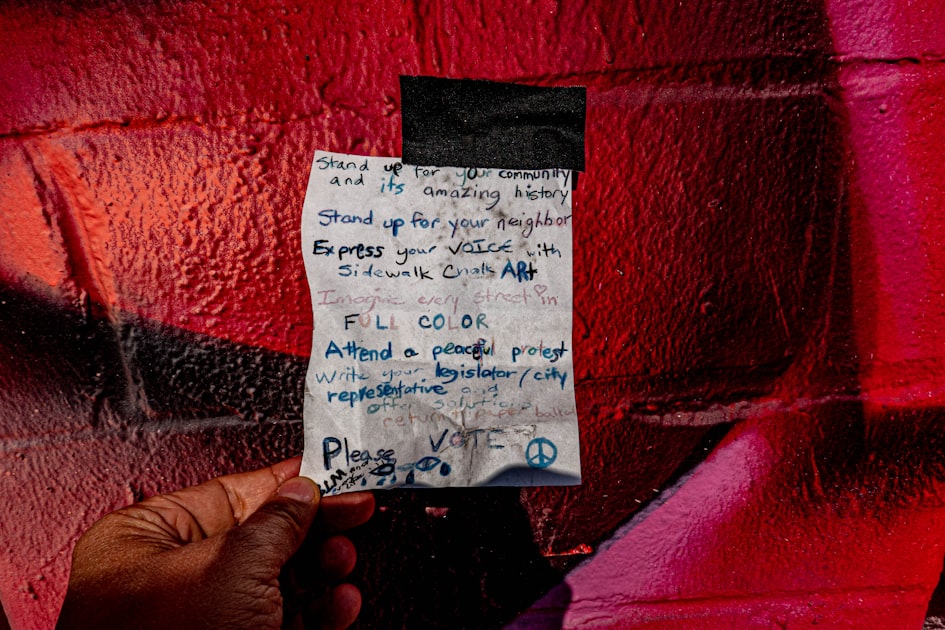 Stand up for your community
and its amazing history
Stand up for your neighbor
Express your VOICE with
Sidewalk Chalk ARt
Imagine every street in
FULL COLOR
Attend a peaceful protest
Write your legislator/city
representative and
offer solutions
return paper ballot
Please VOTE
BLM